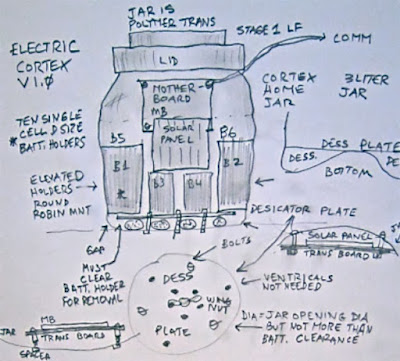 JAR IS
POLYMER TRANS
STAGE 1 LF
COMM
ELECTRIC
CORTEX
V1.0
LID
MOTHER
BOARD
MB
CORTEX
HOME
JAR
3 LITER
JAR
TEN SINGLE
CELL D SIZE
* BATT. HOLDERS
SOLAR
PANEL
B5
B6
B1
*
B2
B3
B4
DESS PLATE
DESS.
DE
BOTTOM
ELEVATED
HOLDERS
ROUND
ROBIN MNT
DESICATOR PLATE
GAP
MUST
CLEAR
BATT. HOLDER
FOR REMOVAL
BOLTS
SOLAR PANEL
JA
TRANS BOARD
DESS
WING
NUT
PLATE
VENTRICALS
NOT NEEDED
DIA = JAR OPENING DIA
BUT NOT MORE THAN
BATT. CLEARANCE
MB
JAR
TRANS BOARD
SPACER